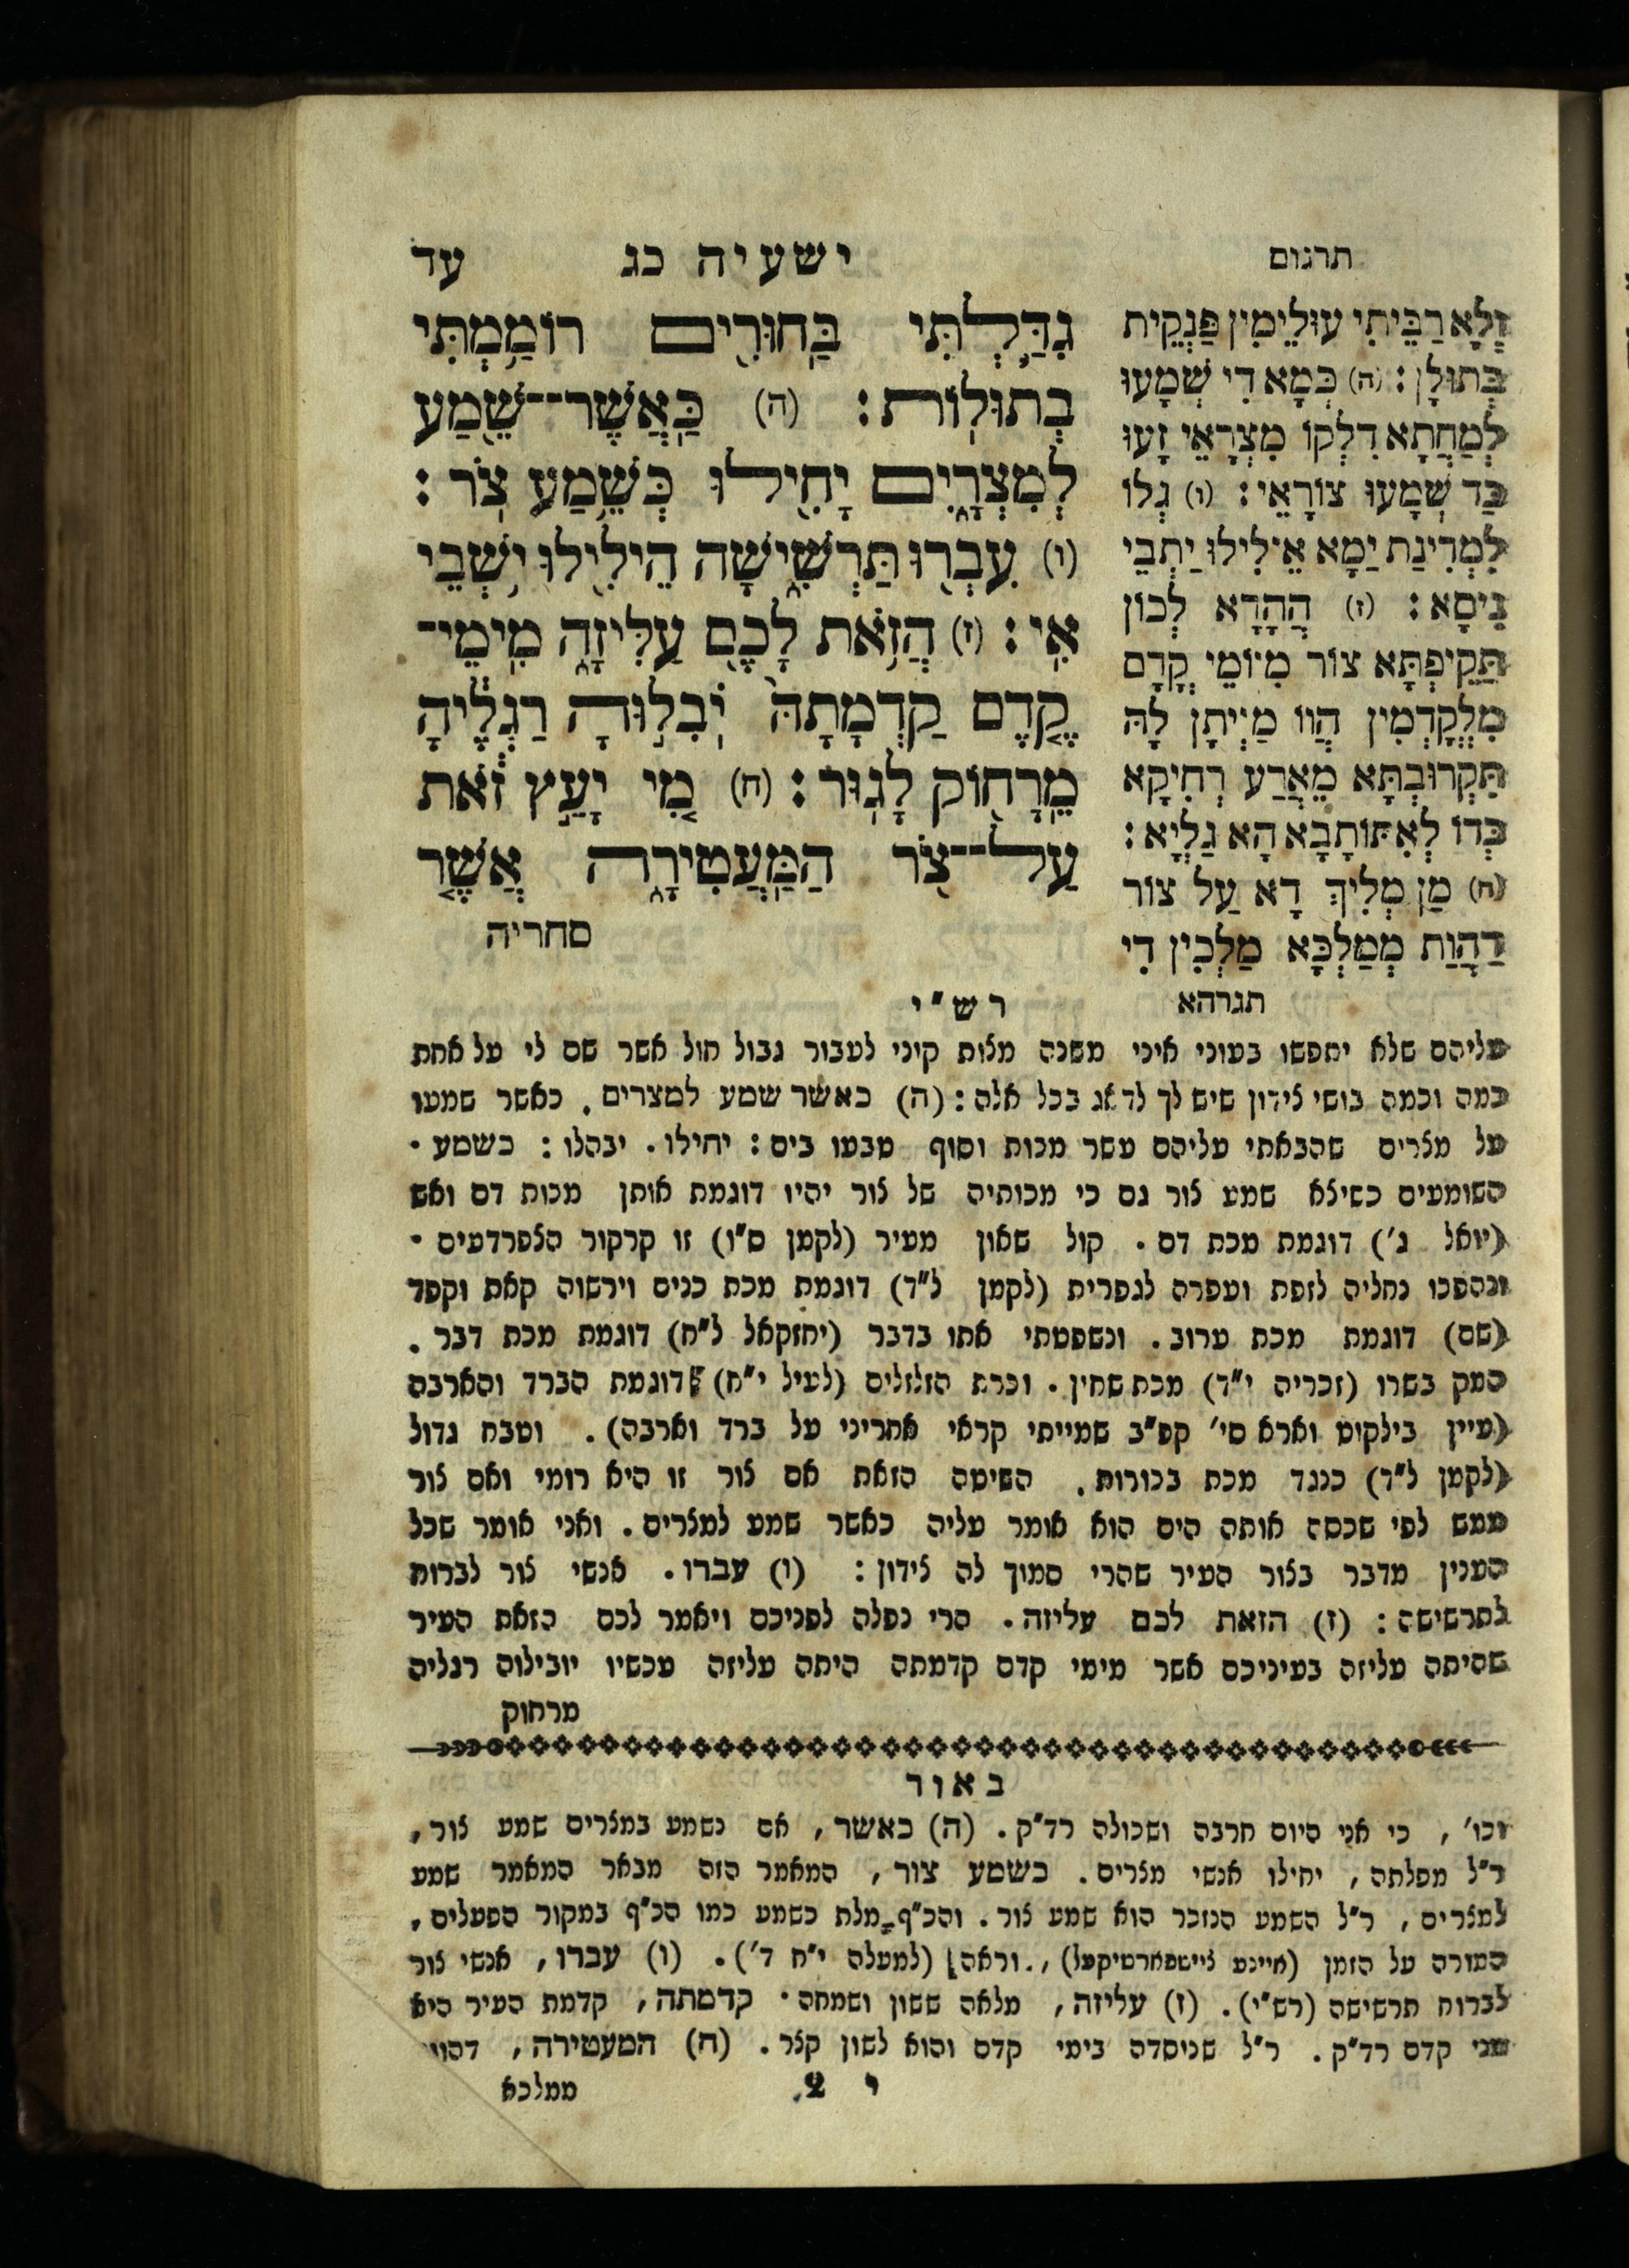 תרגום
ישעיה כג
עד
וְלָא רַבֵּיתִי עוּלֵימִין פַּנְקֵית
בְּתוּלָן: (ה) כְּמָא דִי שְׁמָעוּ
לְמַחֲתָא דִלְקוֹ מִצְרָאֵי זָעוּ
כַּד שְׁמָעוּ צוֹרָאֵי: (ו) גְלוֹ
לִמְדִינַת יַמָא אֵילִילוּ יַתְבֵי
נִיסָא: (ז) הֲהָדָא לְכוֹן
תַּקֵיפְתָּא צוֹר מִיוֹמֵי קֳדָם
מִלְּקַדְמִין הֲווֹ מַיְיתָן לָהּ
תִּקְרוּבְתָּא מֵאֲרַע רְחִיקָא
כְּדוֹ לְאִתּוֹתָבָא הָא גַלְיָא:
(ח) מַן מְלִיךְ דָא עַל צוֹר
דַהֲוַת מְמַלְכָּא מַלְכִין דִי
תגרהא
גִדַּ֥לְתִּי בַּחוּרִ֖ים רוֹמַ֥מְתִּי
בְתוּלֽוֹת: (ה) כַּֽאֲשֶׁר־־שֵׁ֖מַע
לְמִצְרָ֑יִם יָחִ֖ילוּ כְּשֵׁ֥מַע צֹֽר:
(ו) עִבְר֖וּ תַּרְשִׁ֑ישָׁה הֵילִ֖ילוּ יֹ֥שְׁבֵי
אִֽי: (ז) הֲזֹ֥את לָכֶ֖ם עַלִּיזָ֑ה מִֽימֵי־
קֶ֤דֶם קַדְמָתָהּ֙ יֹבִל֣וּהָ רַגְלֶ֔יהָ
מֵֽרָח֖וֹק לָגֽוּר: (ח) מִ֚י יָעַ֣ץ זֹ֔את
עַל־־צֹ֖ר הַמַּֽעֲטִירָ֑ה אֲשֶׁ֤ר
סחריה
רש"י
עליהם שלא יתפשו בעוני איני משנה מצות קוני לעבור גבול חול אשר שם לי על אחת
כמה וכמה בושי צידון שיש לך לדאג בכל אלה: (ה) כאשר שמע למצרים. כאשר שמעו
על מצרים שהבאתי עליהם עשר מכות וסוף טבעו בים: יחילו. יבהלו: כשמע.
השומעים כשיצא שמע צור גם כי מכותיה של צור יהיו דוגמת אותן מכות דם ואש
(יואל ג') דוגמת מכת דם. קול שאון מעיר (לקמן ס"ו) זו קרקור הצפרדעים.
ונהפכו נחליה לזפת ועפרה לגפרית (לקמן ל"ד) דוגמת מכת כנים וירשוה קאת וקפד
(שם) דוגמת מכת ערוב. ונשפטתי אתו בדבר (יחזקאל ל"ח) דוגמת מכת דבר.
המק בשרו (זכריה י"ד) מכת שחין. וכרת הזלזלים (לעיל י"ח) דוגמת הברד והארבה
(עיין בילקוט וארא סי' קפ"ב שמייתי קראי אחריני על ברד וארבה). וטבח גדול
(לקמן ל"ד) כנגד מכת בכורות. השיטה הזאת אם צור זו היא רומי ואם צור
ממש לפי שכסה אותה הים הוא אומר עליה כאשר שמע למצרים. ואני אומר שכל
הענין מדבר בצור העיר שהרי סמוך לה צידון: (ו) עברו. אנשי צור לברוח
לתרשישה: (ז) הזאת לכם עליזה. הרי נפלה לפניכם ויאמר לכם הזאת העיר
שהיתה עליזה בעיניכם אשר מימי קדם קדמתה היתה עליזה עכשיו יובילוה רגליה
מרחוק
באור
וכו', כי אני היום חרבה ושכולה רד"ק. (ה) כאשר, אם נשמע במצרים שמע צור,
ר"ל מפלתה, יחילו אנשי מצרים. כשמע צור, המאמר הזה מבאר המאמר שמע
למצרים, ר"ל השמע הנזכר הוא שמע צור. והכ"ף מלת כשמע כמו הכ"ף במקור הפעלים,
המורה על הזמן (איינע צייטפארטיקעל), וראה (למעלה י"ח ד'). (ו) עברו, אנשי צור
לברוח תרשישה (רש"י). (ז) עליזה, מלאה ששון ושמחה. קדמתה, קדמת העיר היא
מני קדם רד"ק. ר"ל שניסדה בימי קדם והוא לשון קצר. (ח) המעטירה, דהות
י 2
ממלכא